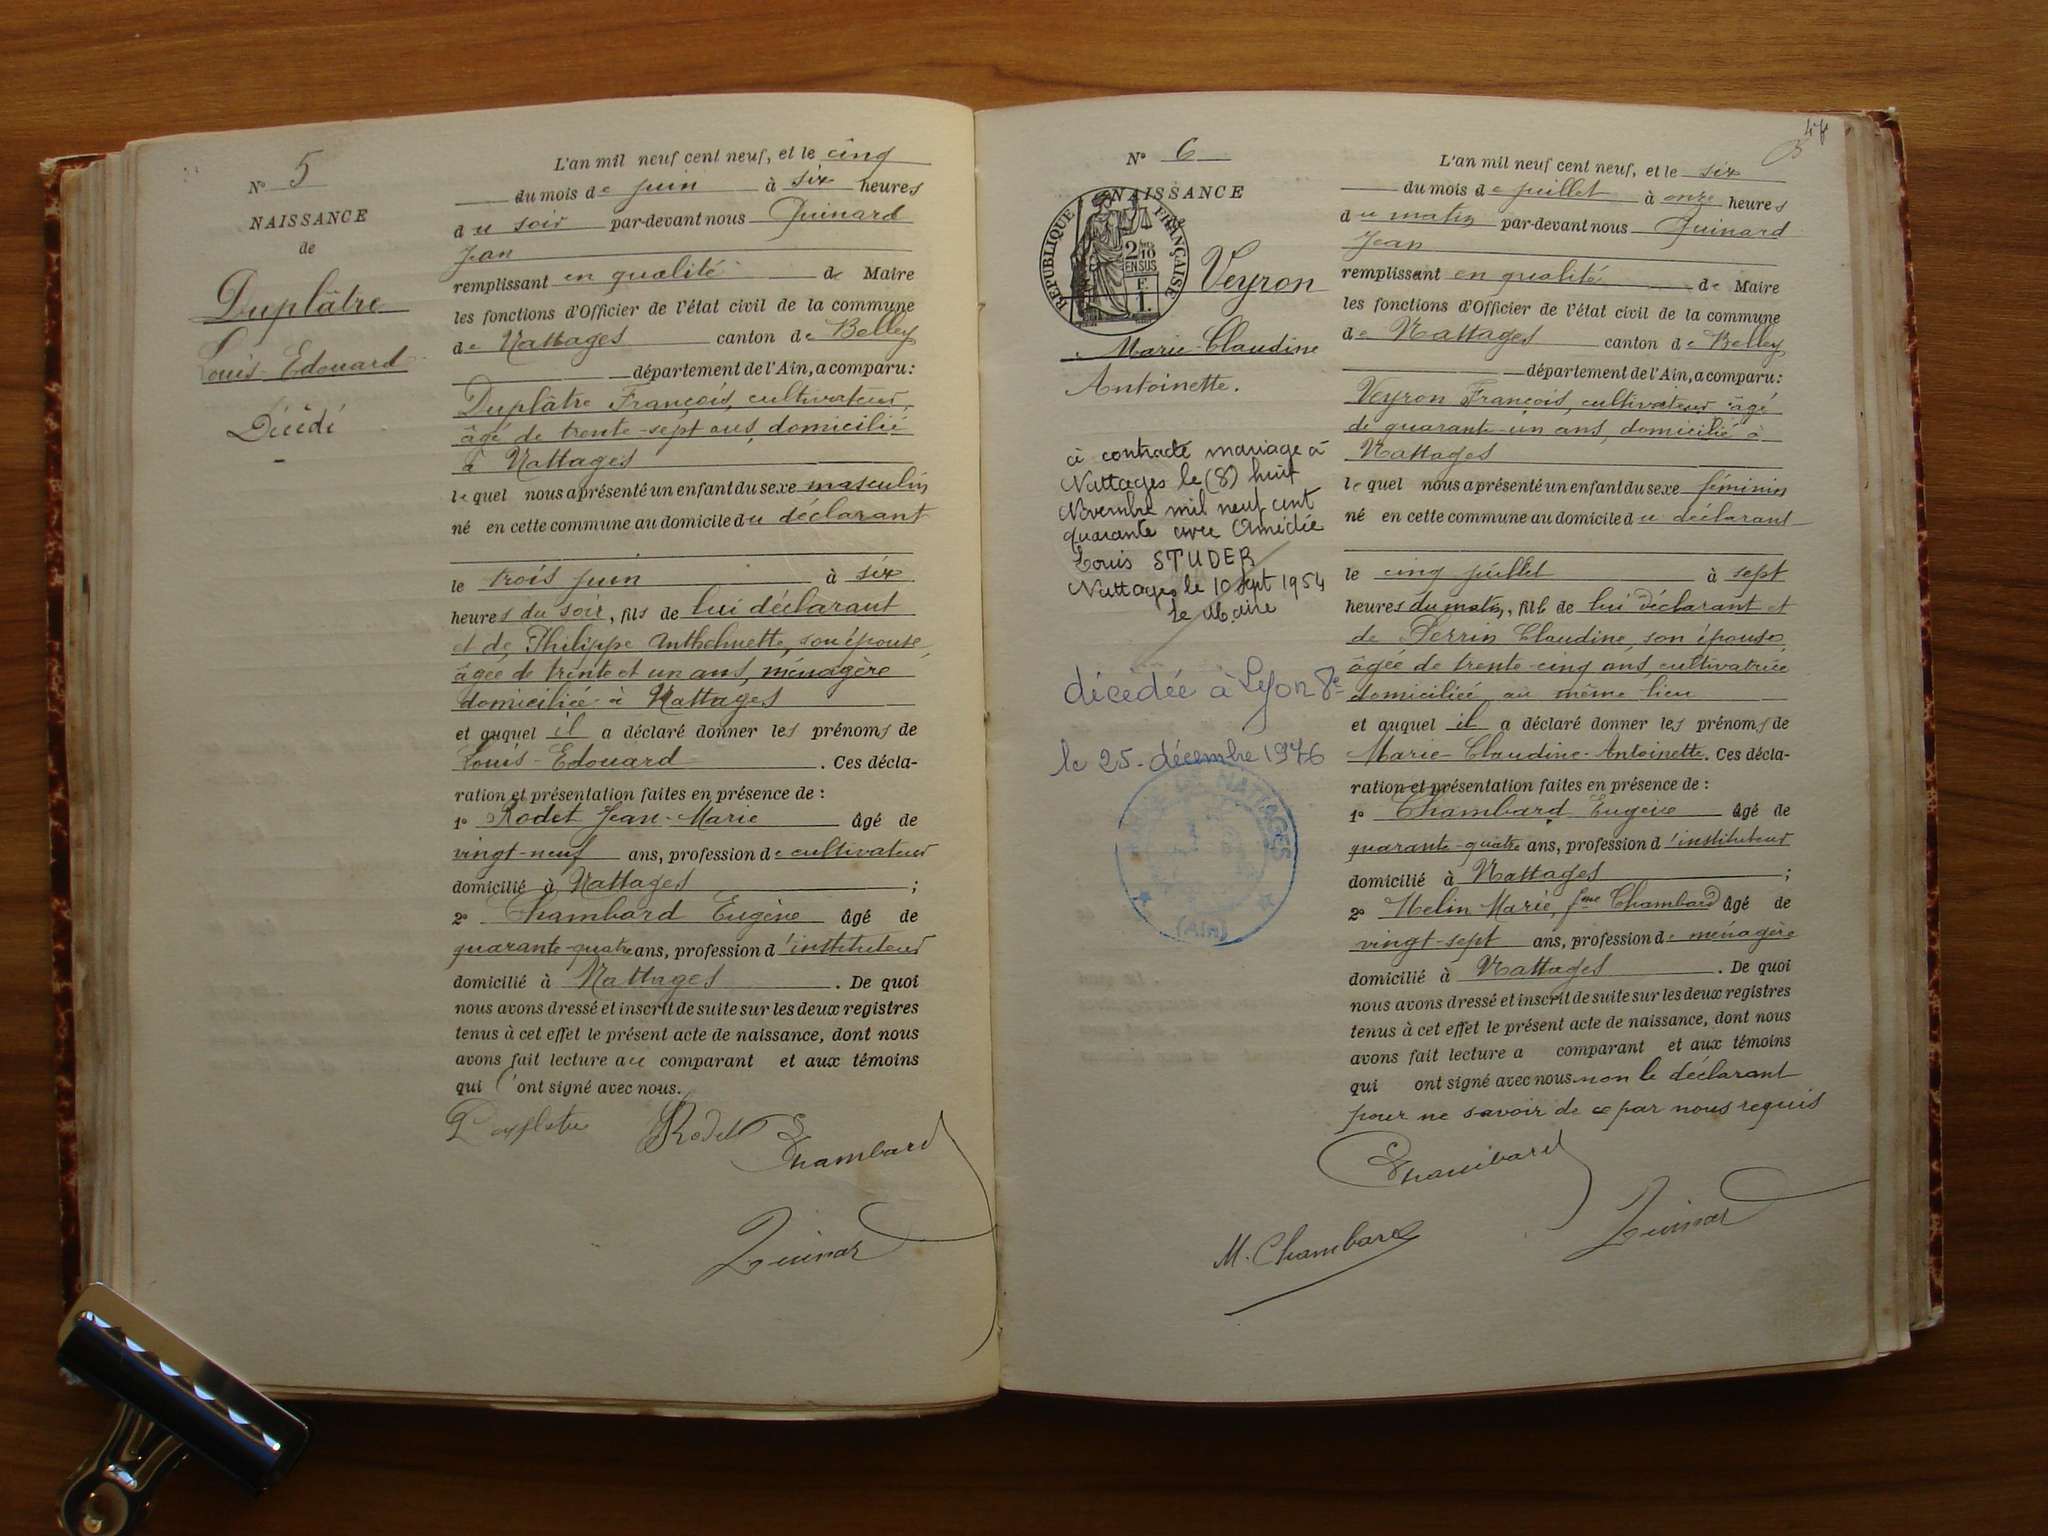 N° 5
NAISSANCE
de
Duplâtre
Louis-Edouard
Décédé
L'an mil neuf cent neuf, et le cinq
du mois de juin à six heures
du soir par-devant nous Quinard
Jean
remplissant en qualité de Maire
les fonctions d'Officier de l'état civil de la commune
de Nattages canton de Belley
département de l'Ain, a comparu:
Duplâtre François, cultivateur,
âgé de trente-sept ans, domicilié
à Nattages
lequel nous a présenté un enfant du sexe masculin
né en cette commune au domicile du déclarant
le trois juin à six
heures du soir, fils de lui déclarant
et de Philippe Anthelmette, son épouse,
âgée de trente et un ans, ménagère
domiciliée à Nattages
et auquel il a déclaré donner les prénoms de
Louis-Edouard. Ces décla-
ration et présentation faites en présence de:
1° Rodet Jean-Marie âgé de
vingt-neuf ans, profession de cultivateur
domicilié à Nattages;
2° Chambard Eugène âgé de
quarante-quatre ans, profession d'instituteur
domicilié à Nattages. De quoi
nous avons dressé et inscrit de suite sur les deux registres
tenus à cet effet le présent acte de naissance, dont nous
avons fait lecture au comparant et aux témoins
qui l'ont signé avec nous.
Duplatre Rodet Chambard
Quinard
47
N° 6
NAISSANCE
RÉPUBLIQUE FRANÇAISE
2/10
EN SUS
F.
1
Veyron
Marie-Claudine
Antoinette.
a contracté mariage à
Nattages le (8) huit
Novembre mil neuf cent
quarante avec Amédée
Louis STUDER
Nattages le 10 Sept 1954
Le Maire
décédée à Lyon 8e
le 25 décembre 1976
MAIRIE DE NATTAGES
(AIN)
L'an mil neuf cent neuf, et le six
du mois de juillet à onze heures
du matin par-devant nous Quinard
Jean
remplissant en qualité de Maire
les fonctions d'Officier de l'état civil de la commune
de Nattages canton de Belley
département de l'Ain, a comparu:
Veyron François, cultivateur âgé
de quarante-un ans, domicilié à
Nattages
lequel nous a présenté un enfant du sexe féminin
né en cette commune au domicile du déclarant
le cinq juillet à sept
heures du matin, fille de lui déclarant et
de Perrin Claudine, son épouse,
âgée de trente-cinq ans, cultivatrice
domiciliée au même lieu
et auquel il a déclaré donner les prénoms de
Marie-Claudine-Antoinette. Ces décla-
ration et présentation faites en présence de:
1° Chambard Eugène âgé de
quarante-quatre ans, profession d'instituteur
domicilié à Nattages;
2° Melin Marie, fme Chambard âgé de
vingt-sept ans, profession de ménagère
domicilié à Nattages. De quoi
nous avons dressé et inscrit de suite sur les deux registres
tenus à cet effet le présent acte de naissance, dont nous
avons fait lecture a comparant et aux témoins
qui ont signé avec nous non le déclarant
pour ne savoir de ce par nous requis
Chambard
Quinard
M. Chambard